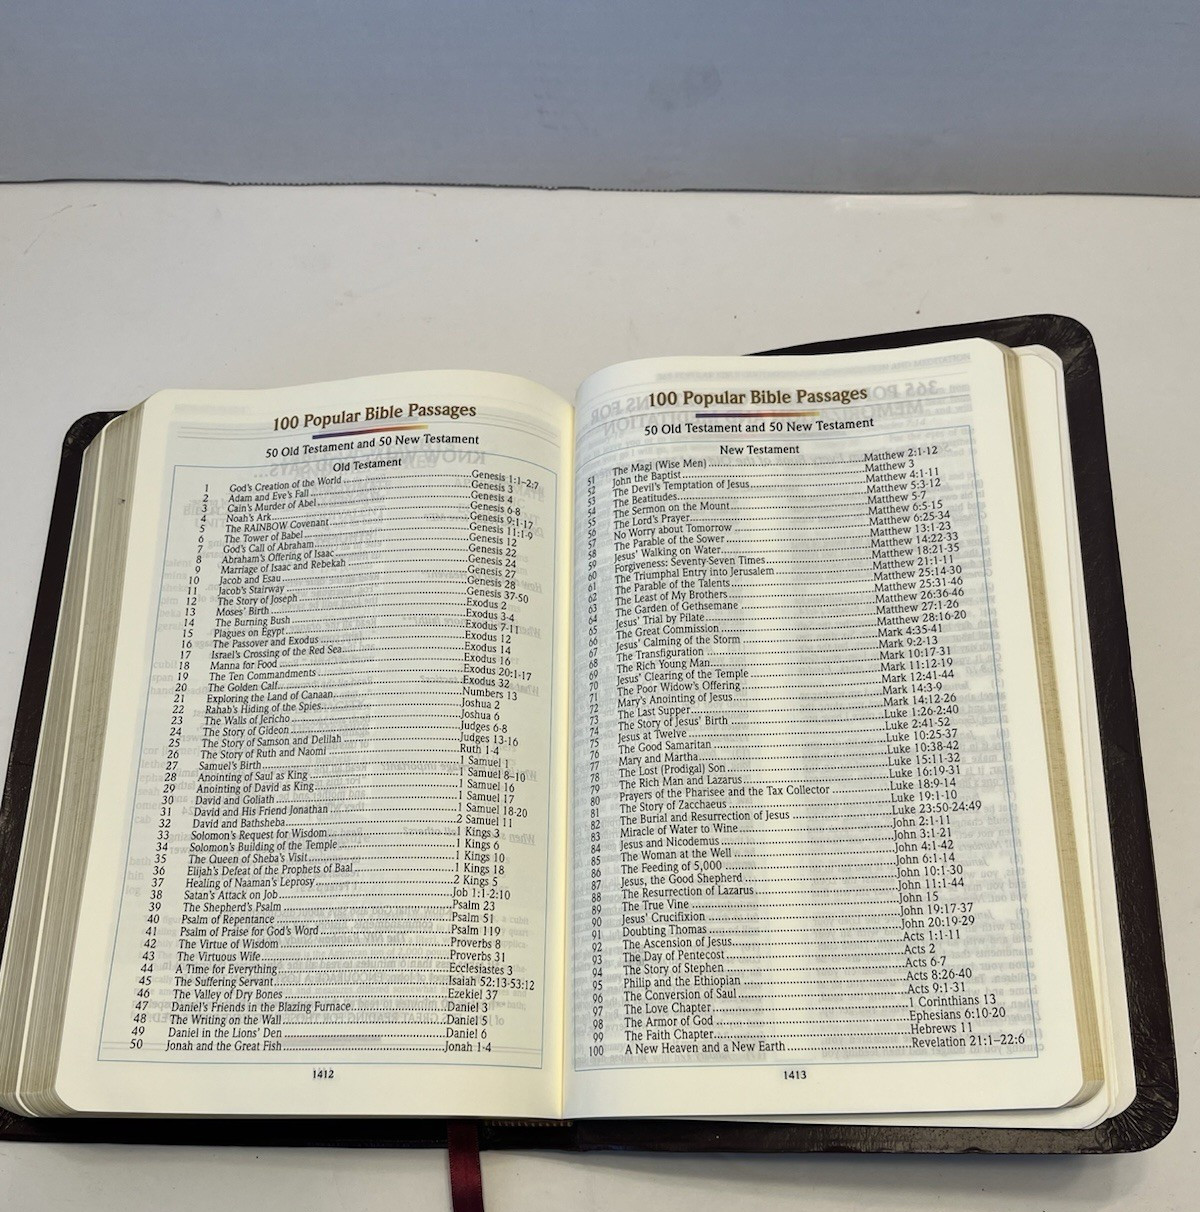 100 Popular Bible Passages
50 Old Testament and 50 New Testament
Old Testament
1 God's Creation of the World Genesis 1:1–2:7
2 Adam and Eve's Fall Genesis 3
3 Cain's Murder of Abel Genesis 4
4 Noah's Ark Genesis 6-8
5 The RAINBOW Covenant Genesis 9:1-17
6 The Tower of Babel Genesis 11:1-9
7 God's Call of Abraham Genesis 12
8 Abraham's Offering of Isaac Genesis 22
9 Marriage of Isaac and Rebekah Genesis 24
10 Jacob and Esau Genesis 27
11 Jacob's Stairway Genesis 28
12 The Story of Joseph Genesis 37-50
13 Moses' Birth Exodus 2
14 The Burning Bush Exodus 3-4
15 Plagues on Egypt Exodus 7-11
16 The Passover and Exodus Exodus 12
17 Israel's Crossing of the Red Sea Exodus 14
18 Manna for Food Exodus 16
19 The Ten Commandments Exodus 20:1-17
20 The Golden Calf Exodus 32
21 Exploring the Land of Canaan Numbers 13
22 Rahab's Hiding of the Spies Joshua 2
23 The Walls of Jericho Joshua 6
24 The Story of Gideon Judges 6-8
25 The Story of Samson and Delilah Judges 13-16
26 The Story of Ruth and Naomi Ruth 1-4
27 Samuel's Birth 1 Samuel 1
28 Anointing of Saul as King 1 Samuel 8–10
29 Anointing of David as King 1 Samuel 16
30 David and Goliath 1 Samuel 17
31 David and His Friend Jonathan 1 Samuel 18-20
32 David and Bathsheba 2 Samuel 11
33 Solomon's Request for Wisdom 1 Kings 3
34 Solomon's Building of the Temple 1 Kings 6
35 The Queen of Sheba's Visit 1 Kings 10
36 Elijah's Defeat of the Prophets of Baal 1 Kings 18
37 Healing of Naaman's Leprosy 2 Kings 5
38 Satan's Attack on Job Job 1:1-2:10
39 The Shepherd's Psalm Psalm 23
40 Psalm of Repentance Psalm 51
41 Psalm of Praise for God's Word Psalm 119
42 The Virtue of Wisdom Proverbs 8
43 The Virtuous Wife Proverbs 31
44 A Time for Everything Ecclesiastes 3
45 The Suffering Servant Isaiah 52:13-53:12
46 The Valley of Dry Bones Ezekiel 37
47 Daniel's Friends in the Blazing Furnace Daniel 3
48 The Writing on the Wall Daniel 5
49 Daniel in the Lions' Den Daniel 6
50 Jonah and the Great Fish Jonah 1-4
1412
100 Popular Bible Passages
50 Old Testament and 50 New Testament
New Testament
51 The Magi (Wise Men) Matthew 2:1-12
52 John the Baptist Matthew 3
53 The Devil's Temptation of Jesus Matthew 4:1-11
54 The Beatitudes Matthew 5:3-12
55 The Sermon on the Mount Matthew 5-7
56 The Lord's Prayer Matthew 6:5-15
57 No Worry about Tomorrow Matthew 6:25-34
58 The Parable of the Sower Matthew 13:1-23
59 Jesus' Walking on Water Matthew 14:22-33
60 Forgiveness: Seventy-Seven Times Matthew 18:21-35
61 The Triumphal Entry into Jerusalem Matthew 21:1-11
62 The Parable of the Talents Matthew 25:14-30
63 The Least of My Brothers Matthew 25:31-46
64 The Garden of Gethsemane Matthew 26:36-46
65 Jesus' Trial by Pilate Matthew 27:1-26
66 The Great Commission Matthew 28:16-20
67 Jesus' Calming of the Storm Mark 4:35-41
68 The Transfiguration Mark 9:2-13
69 The Rich Young Man Mark 10:17-31
70 Jesus' Clearing of the Temple Mark 11:12-19
71 The Poor Widow's Offering Mark 12:41-44
72 Mary's Anointing of Jesus Mark 14:3-9
73 The Last Supper Mark 14:12-26
74 The Story of Jesus' Birth Luke 1:26-2:40
75 Jesus at Twelve Luke 2:41-52
76 The Good Samaritan Luke 10:25-37
77 Mary and Martha Luke 10:38-42
78 The Lost (Prodigal) Son Luke 15:11-32
79 The Rich Man and Lazarus Luke 16:19-31
80 Prayers of the Pharisee and the Tax Collector Luke 18:9-14
81 The Story of Zacchaeus Luke 19:1-10
82 The Burial and Resurrection of Jesus Luke 23:50-24:49
83 Miracle of Water to Wine John 2:1-11
84 Jesus and Nicodemus John 3:1-21
85 The Woman at the Well John 4:1-42
86 The Feeding of 5,000 John 6:1-14
87 Jesus, the Good Shepherd John 10:1-30
88 The Resurrection of Lazarus John 11:1-44
89 The True Vine John 15
90 Jesus' Crucifixion John 19:17-37
91 Doubting Thomas John 20:19-29
92 The Ascension of Jesus Acts 1:1-11
93 The Day of Pentecost Acts 2
94 The Story of Stephen Acts 6-7
95 Philip and the Ethiopian Acts 8:26-40
96 The Conversion of Saul Acts 9:1-31
97 The Love Chapter 1 Corinthians 13
98 The Armor of God Ephesians 6:10-20
99 The Faith Chapter Hebrews 11
100 A New Heaven and a New Earth Revelation 21:1–22:6
1413